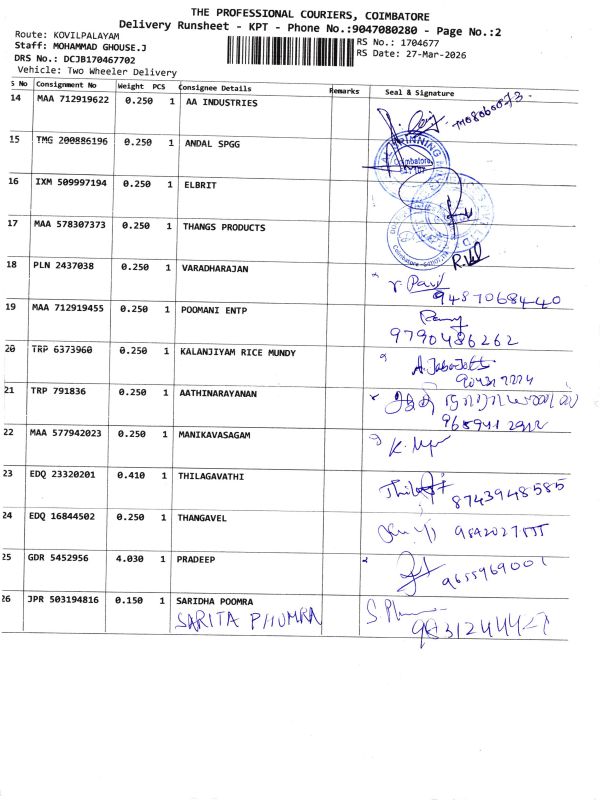 THE PROFESSIONAL COURIERS, COIMBATORE
Delivery Runsheet - KPT - Phone No.:9047080280 - Page No.:2
Route: KOVILPALAYAM
RS No.: 1704677
Staff: MOHAMMAD GHOUSE.J
RS Date: 27-Mar-2026
DRS No.: DCJB170467702
Vehicle: Two Wheeler Delivery
S No Consignment No Weight PCS Consignee Details Remarks Seal & Signature
14 MAA 712919622 0.250 1 AA INDUSTRIES
15 TMG 200886196 0.250 1 ANDAL SPGG
Coimbatore
16 IXM 509997194 0.250 1 ELBRIT
17 MAA 578307373 0.250 1 THANGS PRODUCTS
18 PLN 2437038 0.250 1 VARADHARAJAN
9487068440
19 MAA 712919455 0.250 1 POOMANI ENTP
9790486262
20 TRP 6373960 0.250 1 KALANJIYAM RICE MUNDY
21 TRP 791836 0.250 1 AATHINARAYANAN
22 MAA 577942023 0.250 1 MANIKAVASAGAM
23 EDQ 23320201 0.410 1 THILAGAVATHI
8743948585
24 EDQ 16844502 0.250 1 THANGAVEL
25 GDR 5452956 4.030 1 PRADEEP
9655969001
26 JPR 503194816 0.150 1 SARIDHA POOMRA
SARITA PHUMRA